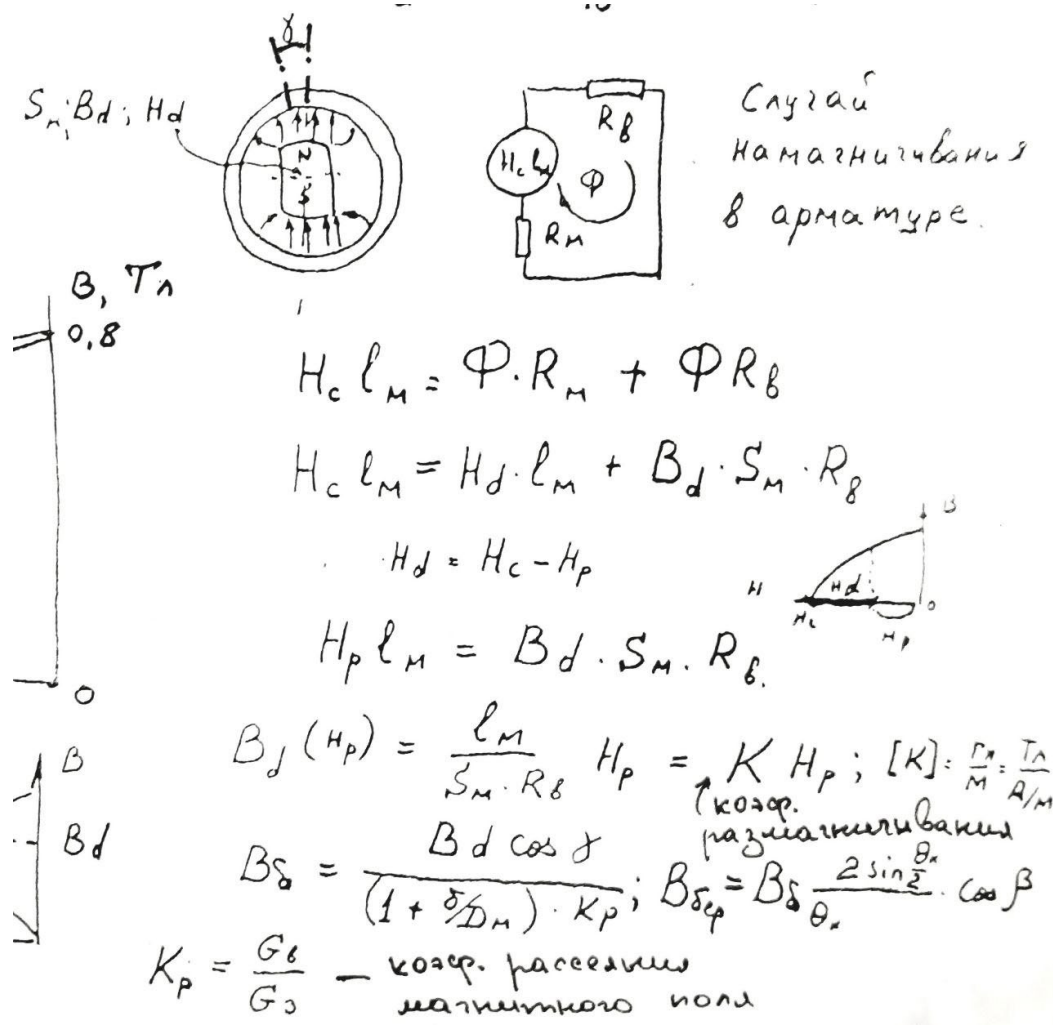 γ
S_м; B_d; H_d
N
S
R_в
H_c l_м
Φ
R_м
Случай
намагничивания
в арматуре.
B, Тл
0,8
0
H_c l_м = Φ·R_м + ΦR_в
H_c l_м = H_d·l_м + B_d·S_м·R_в
H_d = H_c − H_p
B
H
H_d
0
H_c
H_p
H_p l_м = B_d·S_м·R_в.
B_d (H_p) = l_м / (S_м·R_в) H_p = K H_p; [K] = Гн/м = Тл/А/м
коэф.
размагничивания
B
B_d
B_δ = B_d cos γ / ((1 + δ/D_м)·K_p); B_δср = B_δ (2 sin θ_м/2) / θ_м · cos β
K_p = G_в / G_з — коэф. рассеяния
магнитного поля